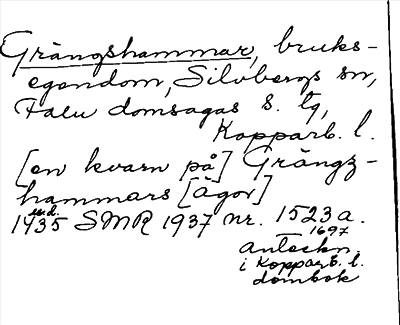 Grängshammar, bruks-
egendom, Silvbergs sn,
Falu domsagas s. tg,
Kopparb. l.
[en kvarn på] Grängz-
hammars [ägor]
u.d.
1435 SMR 1937 nr. 1523a.
1697
Anteckn.
i Kopparb. l.
dombok